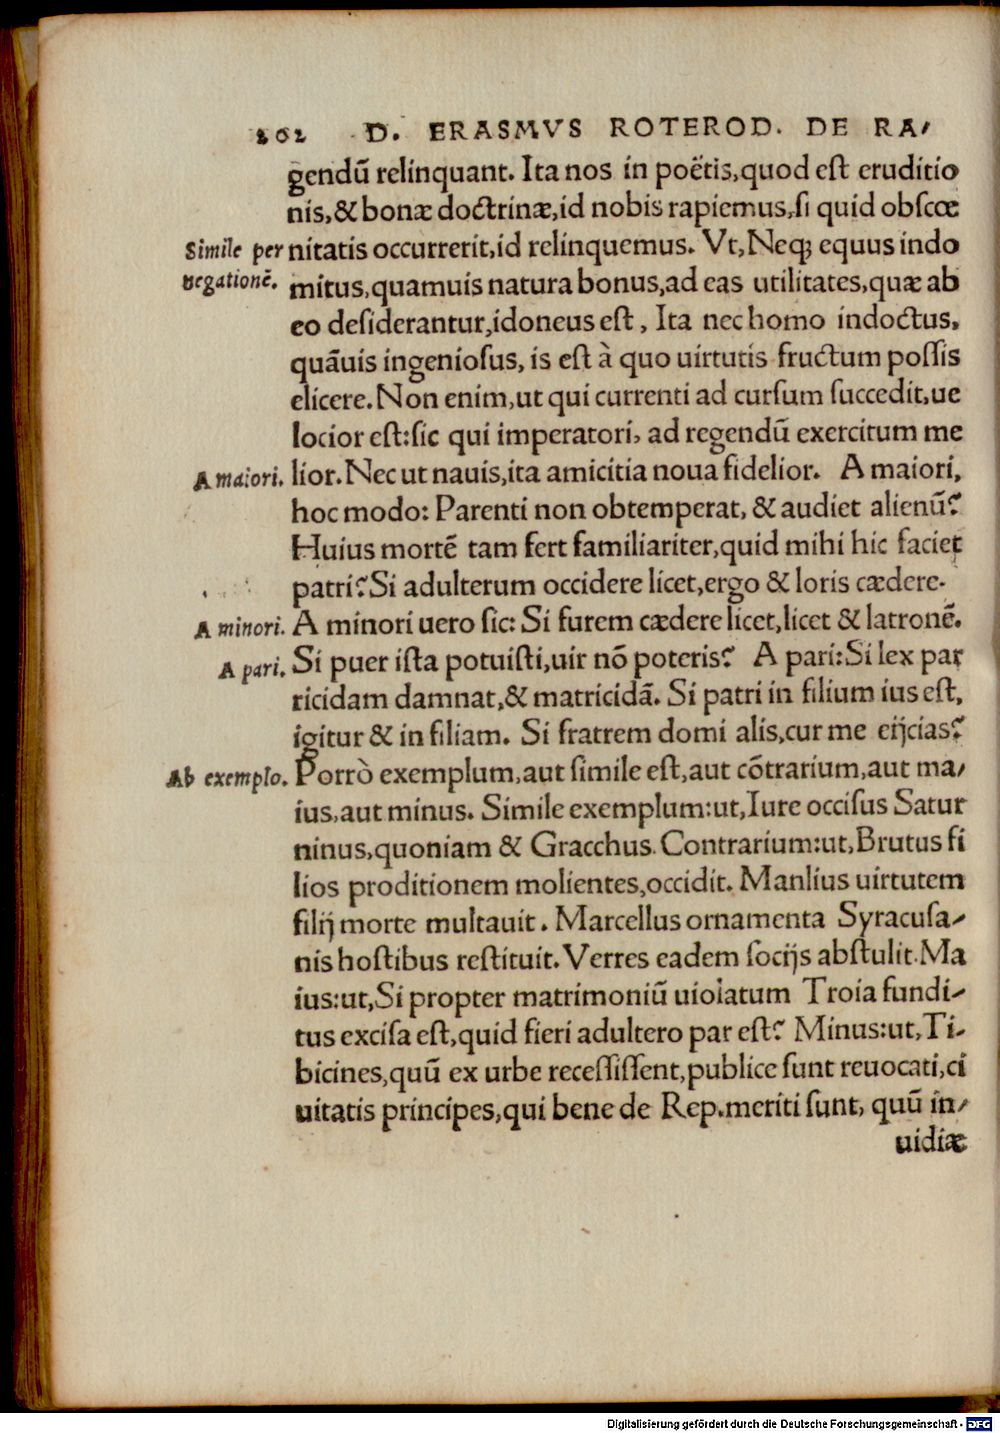 262 D. ERASMVS ROTEROD. DE RA/
gendū relinquant. Ita nos in poëtis,quod est eruditio
nis,& bonæ doctrinæ,id nobis rapiemus,si quid obscœ
Simile per nitatis occurrerit,id relinquemus. Vt,Neq; equus indo
negationē. mitus,quamuis natura bonus,ad eas utilitates,quæ ab
eo desiderantur,idoneus est, Ita nec homo indoctus,
quāuis ingeniosus, is est à quo uirtutis fructum possis
elicere. Non enim,ut qui currenti ad cursum succedit,ue
locior est:sic qui imperatori, ad regendū exercitum me
A maiori. lior. Nec ut nauis,ita amicitia noua fidelior. A maiori,
hoc modo: Parenti non obtemperat, & audiet alienū?
Huius mortē tam fert familiariter,quid mihi hic faciet
patri? Si adulterum occidere licet,ergo & loris cædere.
A minori. A minori uero sic: Si furem cædere licet,licet & latronē.
A pari. Si puer ista potuisti,uir nō poteris? A pari:Si lex par
ricidam damnat,& matricidā. Si patri in filium ius est,
igitur & in filiam. Si fratrem domi alis,cur me eijcias?
Ab exemplo. Porrò exemplum,aut simile est,aut cōtrarium,aut ma/
ius,aut minus. Simile exemplum:ut,Iure occisus Satur
ninus,quoniam & Gracchus. Contrarium:ut,Brutus fi
lios proditionem molientes,occidit. Manlius uirtutem
filij morte multauit. Marcellus ornamenta Syracusa/
nis hostibus restituit. Verres eadem socijs abstulit. Ma
ius:ut,Si propter matrimoniū uiolatum Troia fundi/
tus excisa est,quid fieri adultero par est? Minus:ut,Ti/
bicines,quū ex urbe recessissent,publice sunt reuocati,ci
uitatis principes,qui bene de Rep.meriti sunt, quū in/
uidiæ
Digitalisierung gefördert durch die Deutsche Forschungsgemeinschaft - DFG